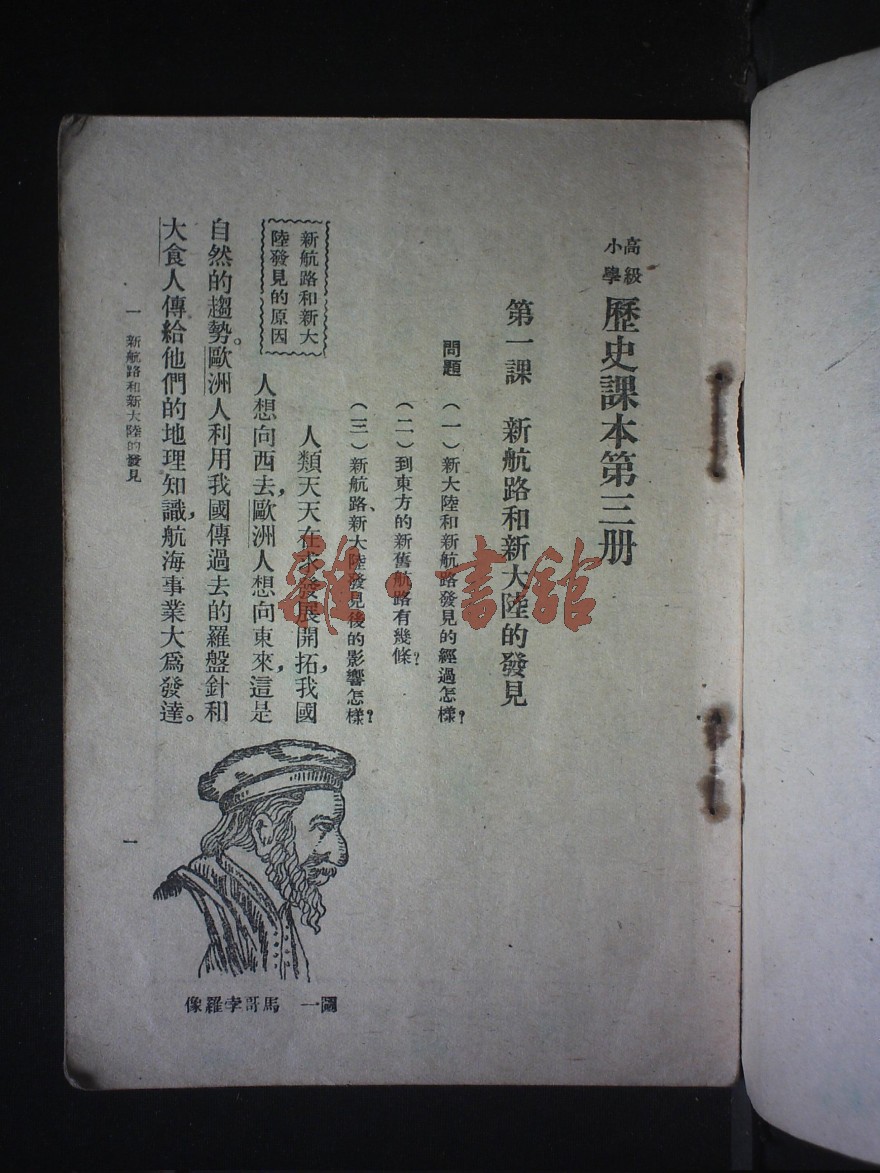 高級小學
歷史課本第三册
第一課　新航路和新大陸的發見
問題　(一)新大陸和新航路發見的經過怎樣？
(二)到東方的新舊航路有幾條？
(三)新航路、新大陸發見後的影響怎樣？
新航路和新大
陸發見的原因
人類天天在求發展開拓，我國
人想向西去，歐洲人想向東來，這是
自然的趨勢。歐洲人利用我國傳過去的羅盤針和
大食人傳給他們的地理知識，航海事業大爲發達。
圖一　馬哥孛羅像
一　新航路和新大陸的發見
一
雜·書館